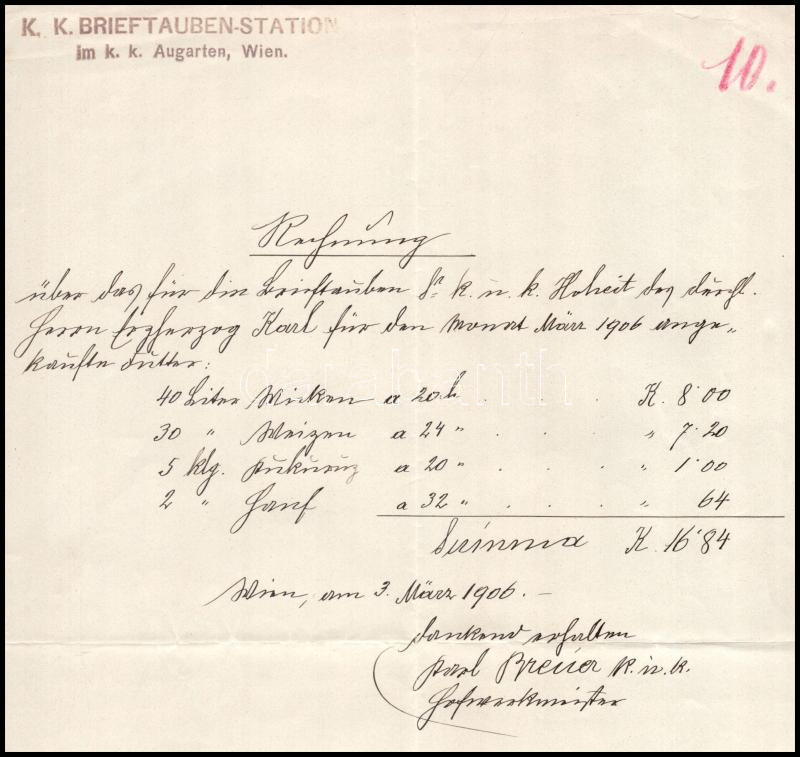 K. K. BRIEFTAUBEN-STATION
im k. k. Augarten, Wien.
10.
Rechnung
über das für die Brieftauben Sr k. u. k. Hoheit des durchl.
Herrn Erzherzog Karl für den Monat März 1906 ange-
kaufte Futter:
40 Liter Wicken a 20 h . . . . K. 8·00
30 " Weizen a 24 " . . . " 7·20
5 klg. Kukuruz a 20 " . . . " 1·00
2 " Hanf a 32 " . . . " 64
Summa K. 16·84
Wien, am 3. März 1906. –
dankend erhalten
Karl Breuer k. u. k.
Hofwerkmeister